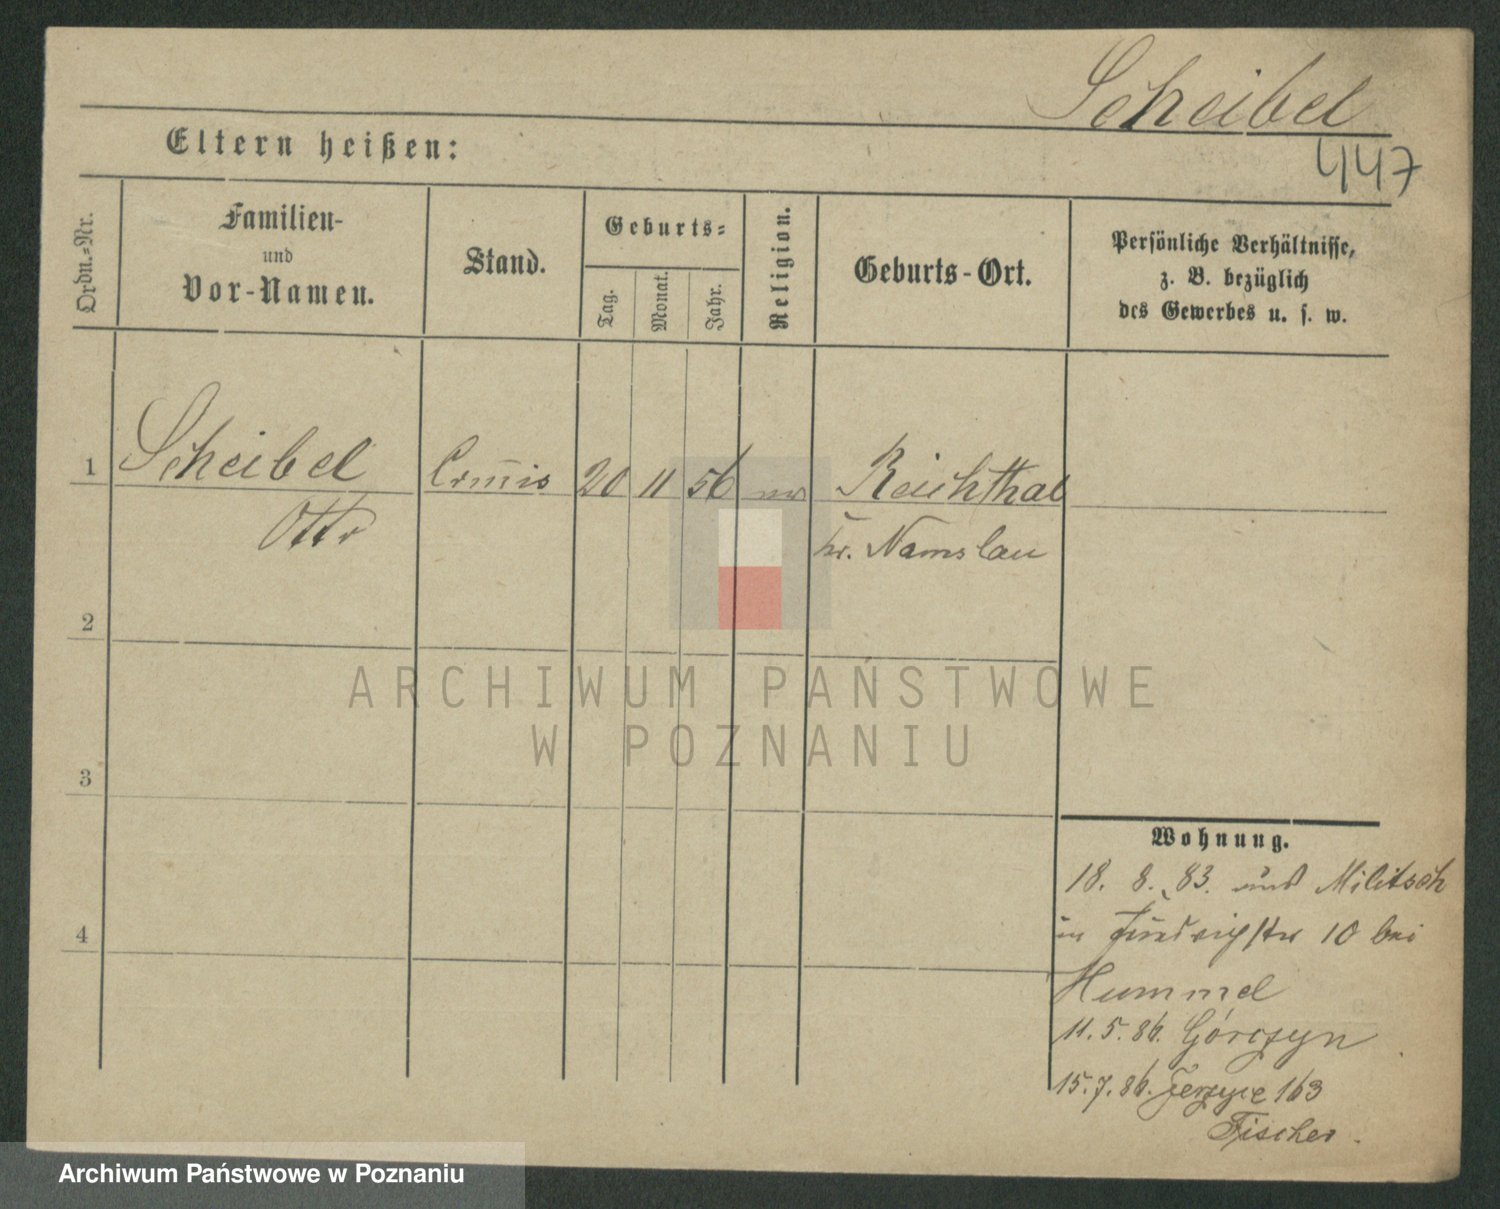 Scheibel
447
Eltern heißen:
Ordn.-Nr.
Familien- und Vor-Namen.
Stand.
Geburts-
Tag.
Monat.
Jahr.
Religion.
Geburts-Ort.
Persönliche Verhältnisse,
z. B. bezüglich
des Gewerbes u. s. w.
1 Scheibel Com̄is 20 11 56 Reichthal
Otto Kr. Namslau
2
3
4
ARCHIWUM PAŃSTWOWE
W POZNANIU
Wohnung.
18. 8. 83. aus Militsch
in 10 bei
Hummel
11. 5. 86. Górczyn
15. 7. 86. Jerzyce 163
Fischer.
Archiwum Państwowe w Poznaniu